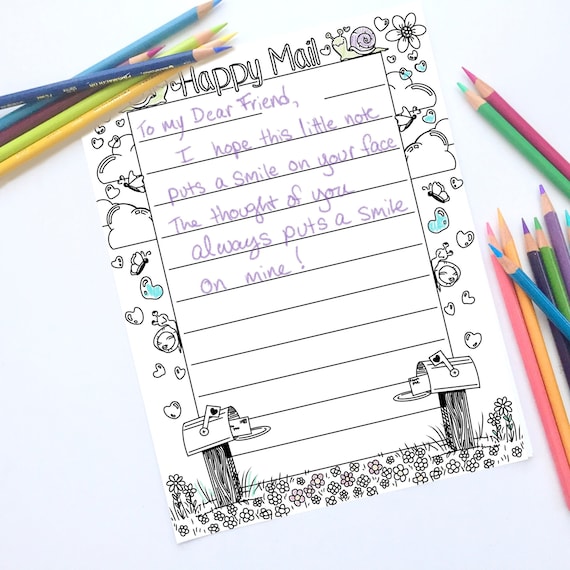 Happy Mail
To my Dear Friend,
I hope this little note
puts a smile on your face
The thought of you
always puts a smile
on mine!